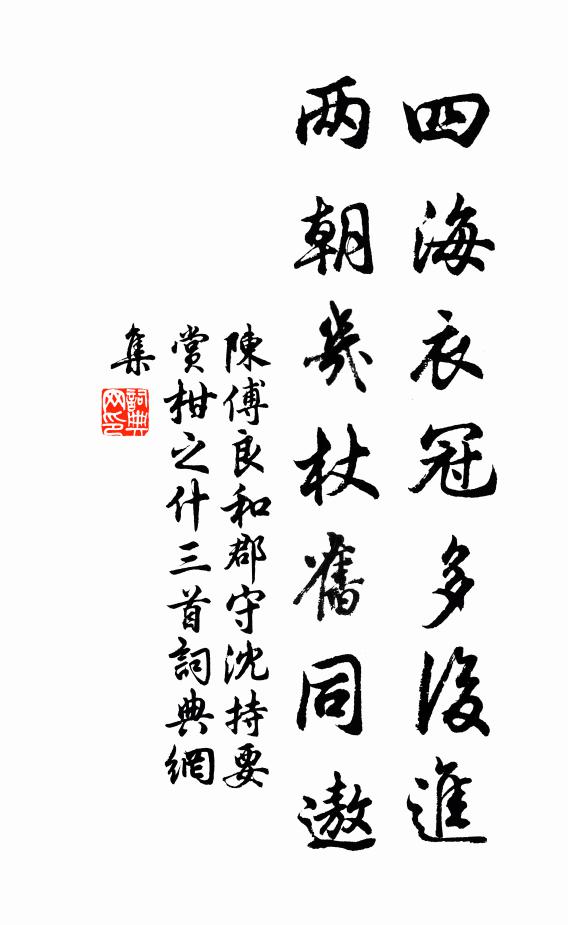 四海衣冠多後進
两朝几杖舊同遨
陳傅良和郡守沈持要
賞柑之什三首詞典網
集
詞典
网印